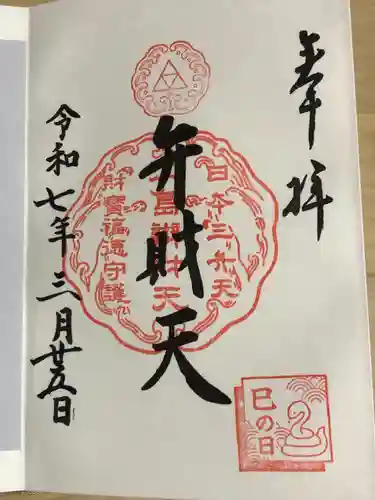 奉拝
弁財天
日本三弁天
江島御財天
財寶福德守護
令和七年三月廿五日
巳の日